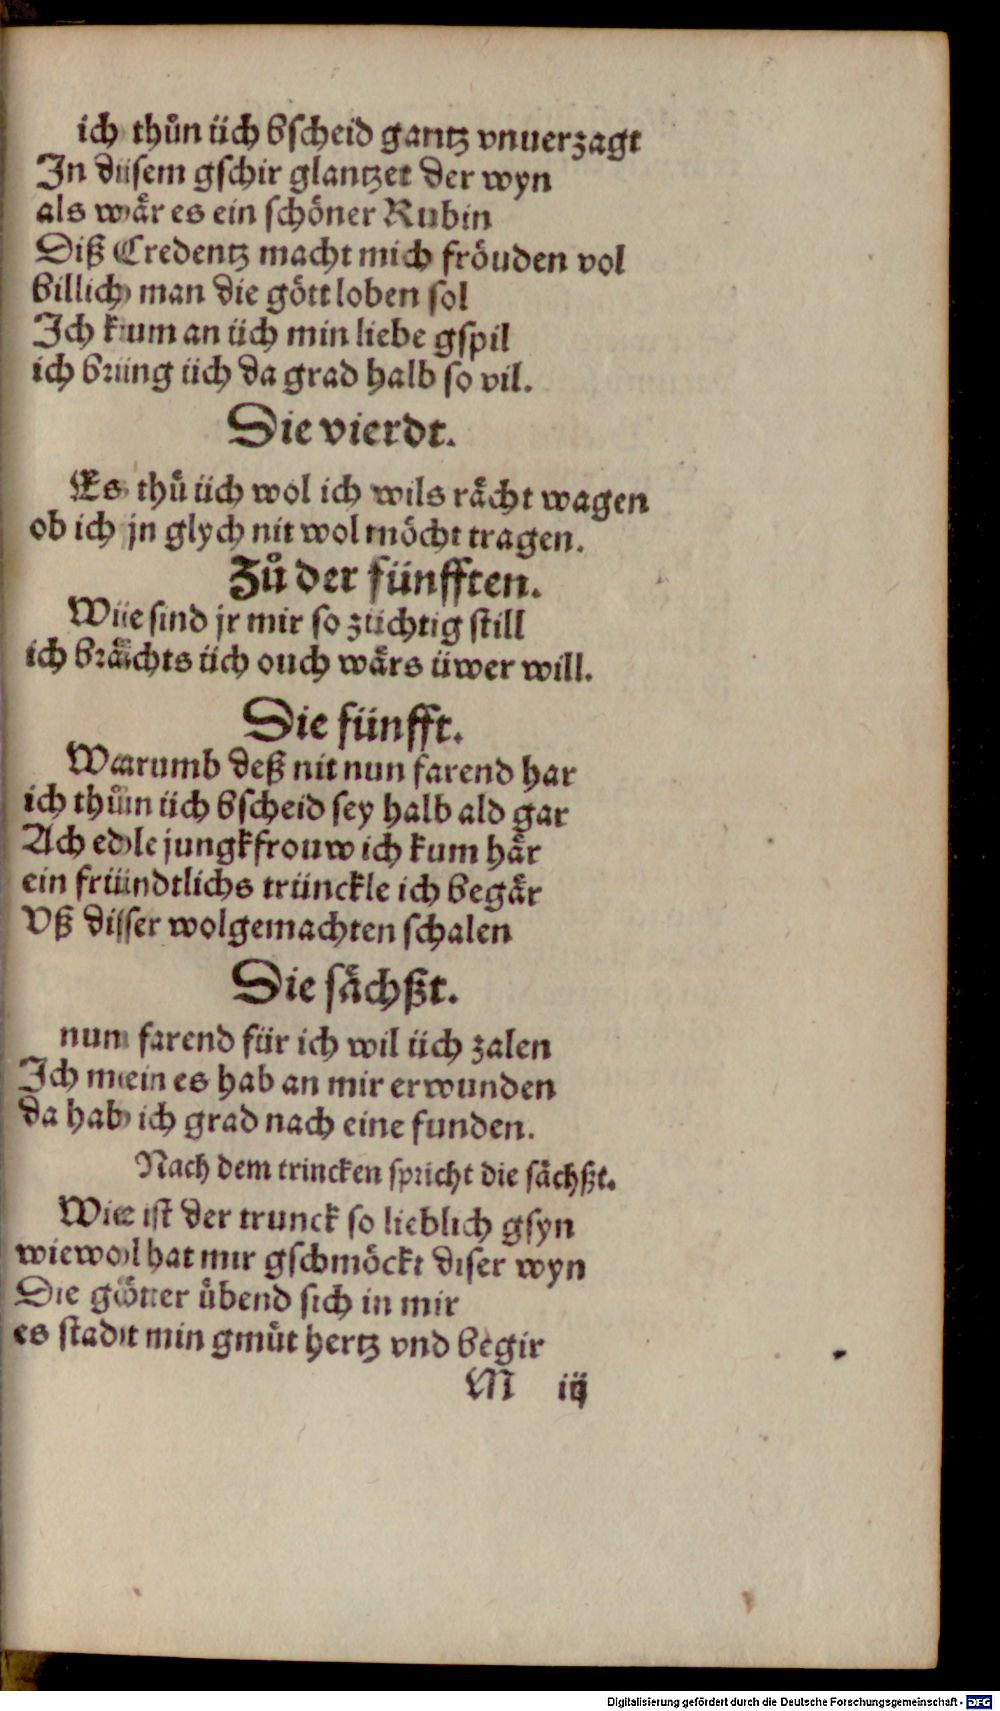 ich thůn üch bscheid gantz vnuerzagt
In disem gschir glantzet der wyn
als wår es ein schöner Rubin
Diß Credentz macht mich fröuden vol
billich man die gött loben sol
Ich kum an üch min liebe gspil
ich bring üch da grad halb so vil.
Die vierdt.
Es thů üch wol ich wils råcht wagen
ob ich jn glych nit wol möcht tragen.
Zů der fünfften.
Wie sind jr mir so züchtig still
ich brächts üch ouch wårs üwer will.
Die fünfft.
Warumb deß nit nun farend har
ich thůn üch bscheid sey halb ald gar
Ach edle jungkfrouw ich kum här
ein fründtlichs trünckle ich begår
Vß disser wolgemachten schalen
Die såchßt.
nun farend für ich wil üch zalen
Ich mein es hab an mir erwunden
da hab ich grad nach eine funden.
Nach dem trincken spricht die såchßt.
Wie ist der trunck so lieblich gsyn
wie wol hat mir gschmöckt diser wyn
Die götter übend sich in mir
es stadt min gmůt hertz vnd begir
M iij
Digitalisierung gefördert durch die Deutsche Forschungsgemeinschaft - DFG